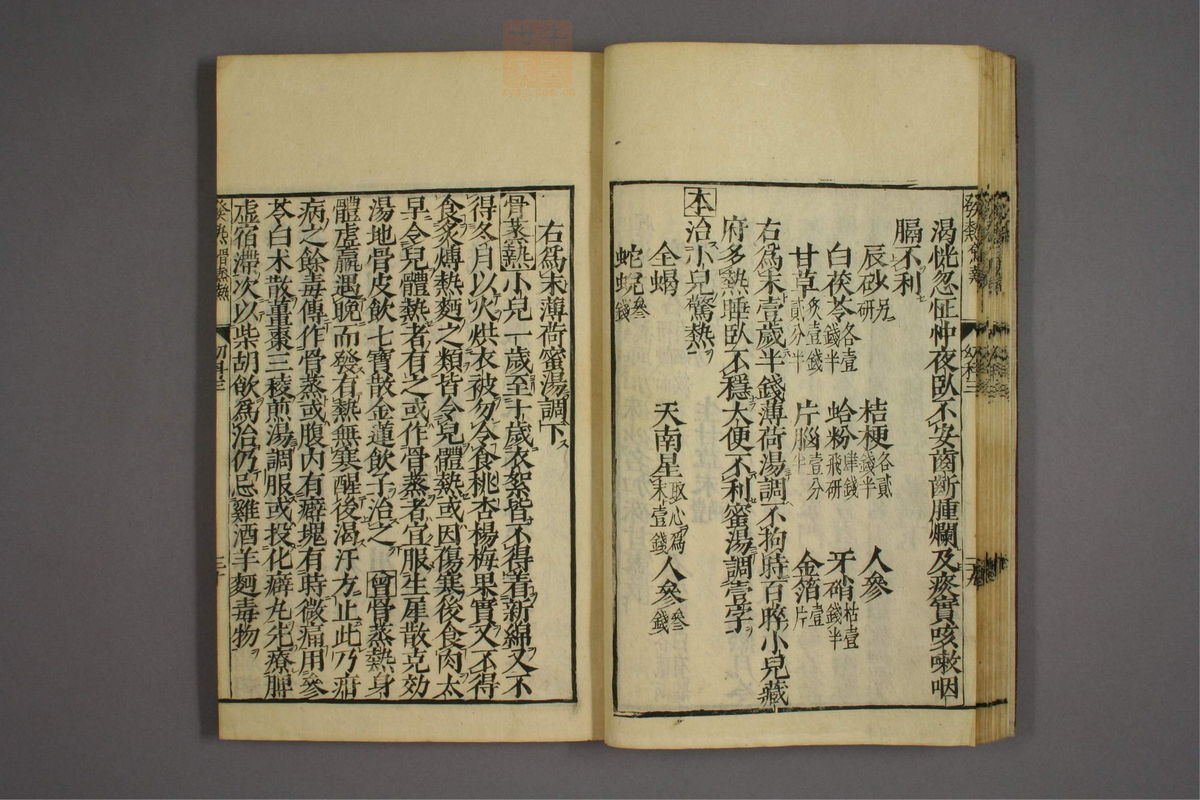 渴恍忽怔忡夜臥不安齒齗腫爛及痰實咳嗽咽
膈不利
辰砂研 桔梗各貳錢半 人參
白茯苓各壹錢半 蛤粉飛研肆錢 牙硝枯壹錢半
甘草炙壹錢貳分半 片腦壹分半 金箔壹片
右爲末壹歲半錢薄荷湯調下不拘時百晬小兒藏
府多熱睡臥不穩大便不利蜜湯調壹字
本治小兒驚熱
全蝎 天南星取心爲末壹錢 人參叁錢
蛇蛻叁錢
右爲末薄荷蜜湯調下
骨蒸熱小兒一歲至十歲衣絮皆不得着新綿又不
得冬月以火烘衣被勿令食桃杏楊梅果實又不得
食炙煿熱麵之類皆令兒體熱或因傷寒後食肉太
早令兒體熱者有之或作骨蒸者宜服生犀散克効
湯地骨皮飲七寶散金蓮飲子治之 曾骨蒸熱身
體虛羸遇晚而發有熱無寒醒後渴汗方止此乃疳
病之餘毒傳作骨蒸或腹內有癖塊有時微痛用參
苓白朮散薑棗三稜煎湯調服或投化癖丸先療脾
虛宿滯次以柴胡飲爲治仍忌雞酒羊麵毒物